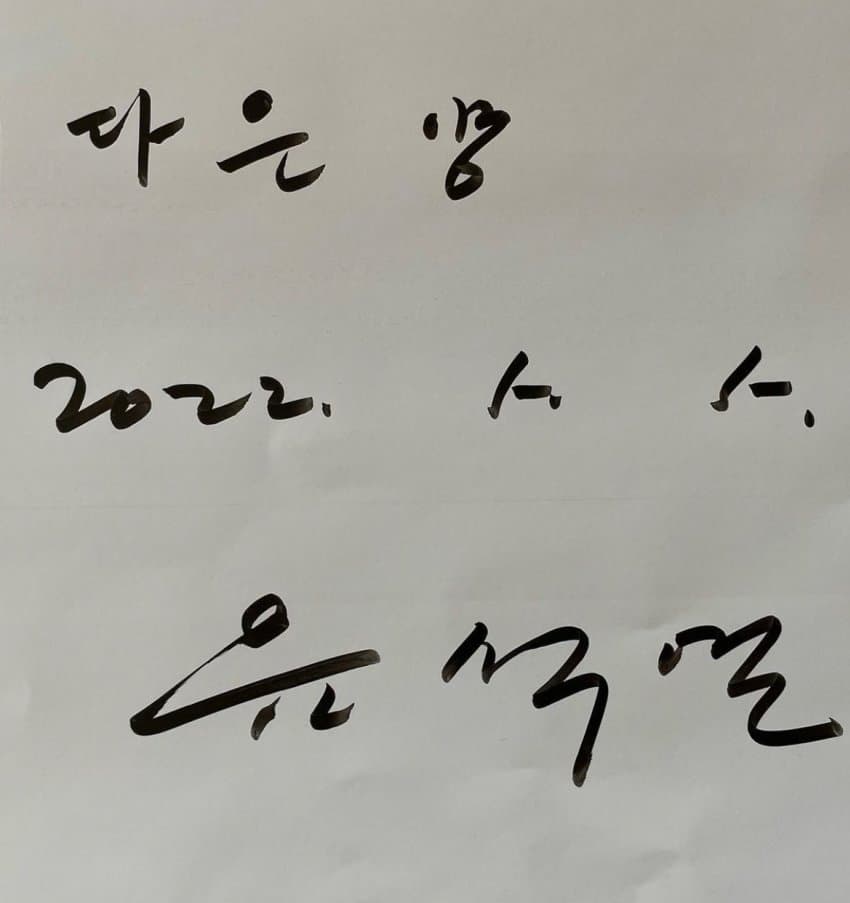 다은 양
2022. 5. 5.
윤석열